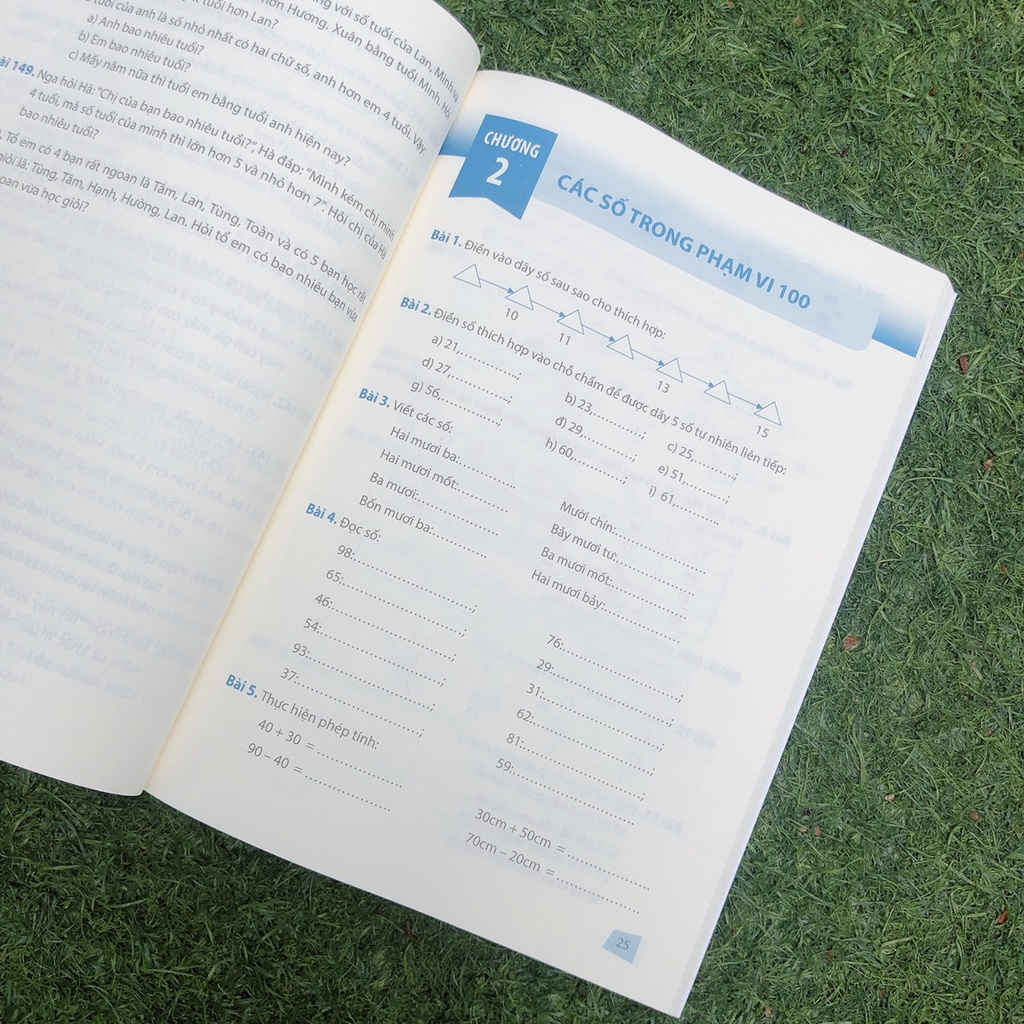 với số tuổi của Lan, Minh
Hương. Xuân bằng tuổi Minh, Hỏi
tuổi hơn Lan?
tuổi của anh là số nhỏ nhất có hai chữ số, anh hơn em 4 tuổi. Vậy:
a) Anh bao nhiêu tuổi?
b) Em bao nhiêu tuổi?
c) Mấy năm nữa thì tuổi em bằng tuổi anh hiện nay?
149. Nga hỏi Hà: "Chị của bạn bao nhiêu tuổi?". Hà đáp: "Mình kém chị mình
4 tuổi, mà số tuổi của mình thì lớn hơn 5 và nhỏ hơn 7". Hỏi chị của Hà
bao nhiêu tuổi?
Tổ em có 4 bạn rất ngoan là Tâm, Lan, Tùng, Toàn và có 5 bạn học rất
giỏi là: Tùng, Tâm, Hạnh, Hường, Lan. Hỏi tổ em có bao nhiêu bạn vừa
ngoan vừa học giỏi?
CHƯƠNG
2
CÁC SỐ TRONG PHẠM VI 100
Bài 1. Điền vào dãy số sau sao cho thích hợp:
10 11 13 15
Bài 2. Điền số thích hợp vào chỗ chấm để được dãy 5 số tự nhiên liên tiếp:
a) 21,............; b) 23,............; c) 25,............;
d) 27,............; đ) 29,............; e) 51,............;
g) 56,............; h) 60,............; i) 61,............
Bài 3. Viết các số:
Hai mươi ba:............ Mười chín:............
Hai mươi mốt:............ Bảy mươi tư:............
Ba mươi:............ Ba mươi mốt:............
Bốn mươi ba:............ Hai mươi bảy:............
Bài 4. Đọc số:
98:............; 76:............;
65:............; 29:............;
46:............; 31:............;
54:............; 62:............;
93:............; 81:............;
37:............; 59:............
Bài 5. Thực hiện phép tính:
40 + 30 =............ 30cm + 50cm =............
90 – 40 =............ 70cm – 20cm =............
25